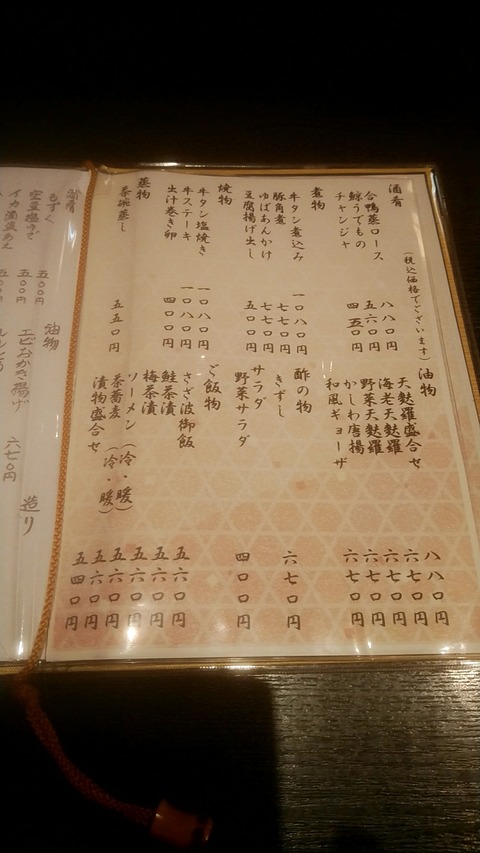 酒肴
(税込価格でございます)
合鴨蒸ロース 八八〇円
鯨うでもの 五六〇円
チャンジャ 四五〇円
煮物
牛タン煮込み 一〇八〇円
豚角煮 七七〇円
ゆばあんかけ 七七〇円
豆腐揚げ出し 五〇〇円
焼物
牛タン塩焼き 一〇八〇円
牛ステーキ 一〇八〇円
出汁巻き卵 四〇〇円
蒸物
茶碗蒸し 五五〇円
油物
天麩羅盛合せ 八八〇円
海老天麩羅 六七〇円
野菜天麩羅 六七〇円
かしわ唐揚 六七〇円
和風ギョーザ 六七〇円
酢の物
きずし 六七〇円
サラダ
野菜サラダ 四〇〇円
ご飯物
さざ波御飯 五六〇円
鮭茶漬 五六〇円
梅茶漬 五六〇円
ソーメン(冷・暖) 五六〇円
茶蕎麦(冷・暖) 五六〇円
漬物盛合せ 五四〇円
酒肴
もずく 五〇〇円
空豆塩ゆで 五〇〇円
油物
エビおかき揚げ 六七〇円
造り